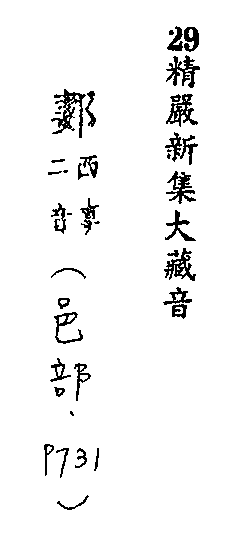 29精嚴新集大藏音
西
二音
(邑部、P731)